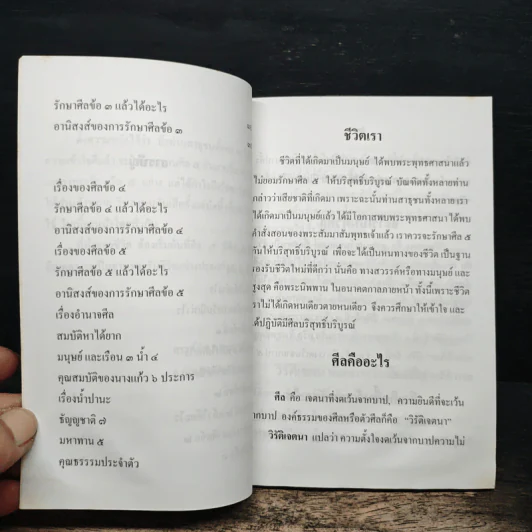 รักษาศีลข้อ ๓ แล้วได้อะไร
อานิสงส์ของการรักษาศีลข้อ ๓
เรื่องของศีลข้อ ๔
รักษาศีลข้อ ๔ แล้วได้อะไร
อานิสงส์ของการรักษาศีลข้อ ๔
เรื่องของศีลข้อ ๕
รักษาศีลข้อ ๕ แล้วได้อะไร
อานิสงส์ของการรักษาศีลข้อ ๕
เรื่องอำนาจศีล
สมบัติหาได้ยาก
มนุษย์ และเรือน ๓ น้ำ ๔
คุณสมบัติของนางแก้ว ๖ ประการ
เรื่องน้ำปานะ
ธัญญชาติ ๗
มหาทาน ๕
คุณธรรมประจำตัว
ชีวิตเรา
ชีวิตที่ได้เกิดมาเป็นมนุษย์ ได้พบพระพุทธศาสนาแล้ว
ไม่ยอมรักษาศีล ๕ ให้บริสุทธิ์บริบูรณ์ บัณฑิตทั้งหลายท่าน
กล่าวว่าเสียชาติที่เกิดมา เพราะฉะนั้นท่านสาธุชนทั้งหลายเรา
ได้เกิดมาเป็นมนุษย์แล้ว ได้มีโอกาสพบพระพุทธศาสนา ได้พบ
คำสั่งสอนของพระสัมมาสัมพุทธเจ้าแล้ว เราควรจะรักษาศีล ๕
กันให้บริสุทธิ์บริบูรณ์ เพื่อจะได้เป็นหนทางของชีวิต เป็นฐาน
องรับชีวิตใหม่ที่ดีกว่า นั่นคือ ทางสวรรค์หรือทางมนุษย์ และ
สูงสุด คือพระนิพพาน ในอนาคตกาลภายหน้า ทั้งนี้เพราะชีวิต
ราไม่ได้เกิดหนเดียวตายหนเดียว จึงควรศึกษาให้เข้าใจ และ
ได้ปฏิบัติมีศีลบริสุทธิ์บริบูรณ์
ศีลคืออะไร
ศีล คือ เจตนาที่งดเว้นจากบาป, ความยินดีที่จะเว้น
จากบาป องค์ธรรมของศีลหรือตัวศีลก็คือ "วิรัติเจตนา"
วิรัติเจตนา แปลว่า ความตั้งใจงดเว้นจากบาปความไม่